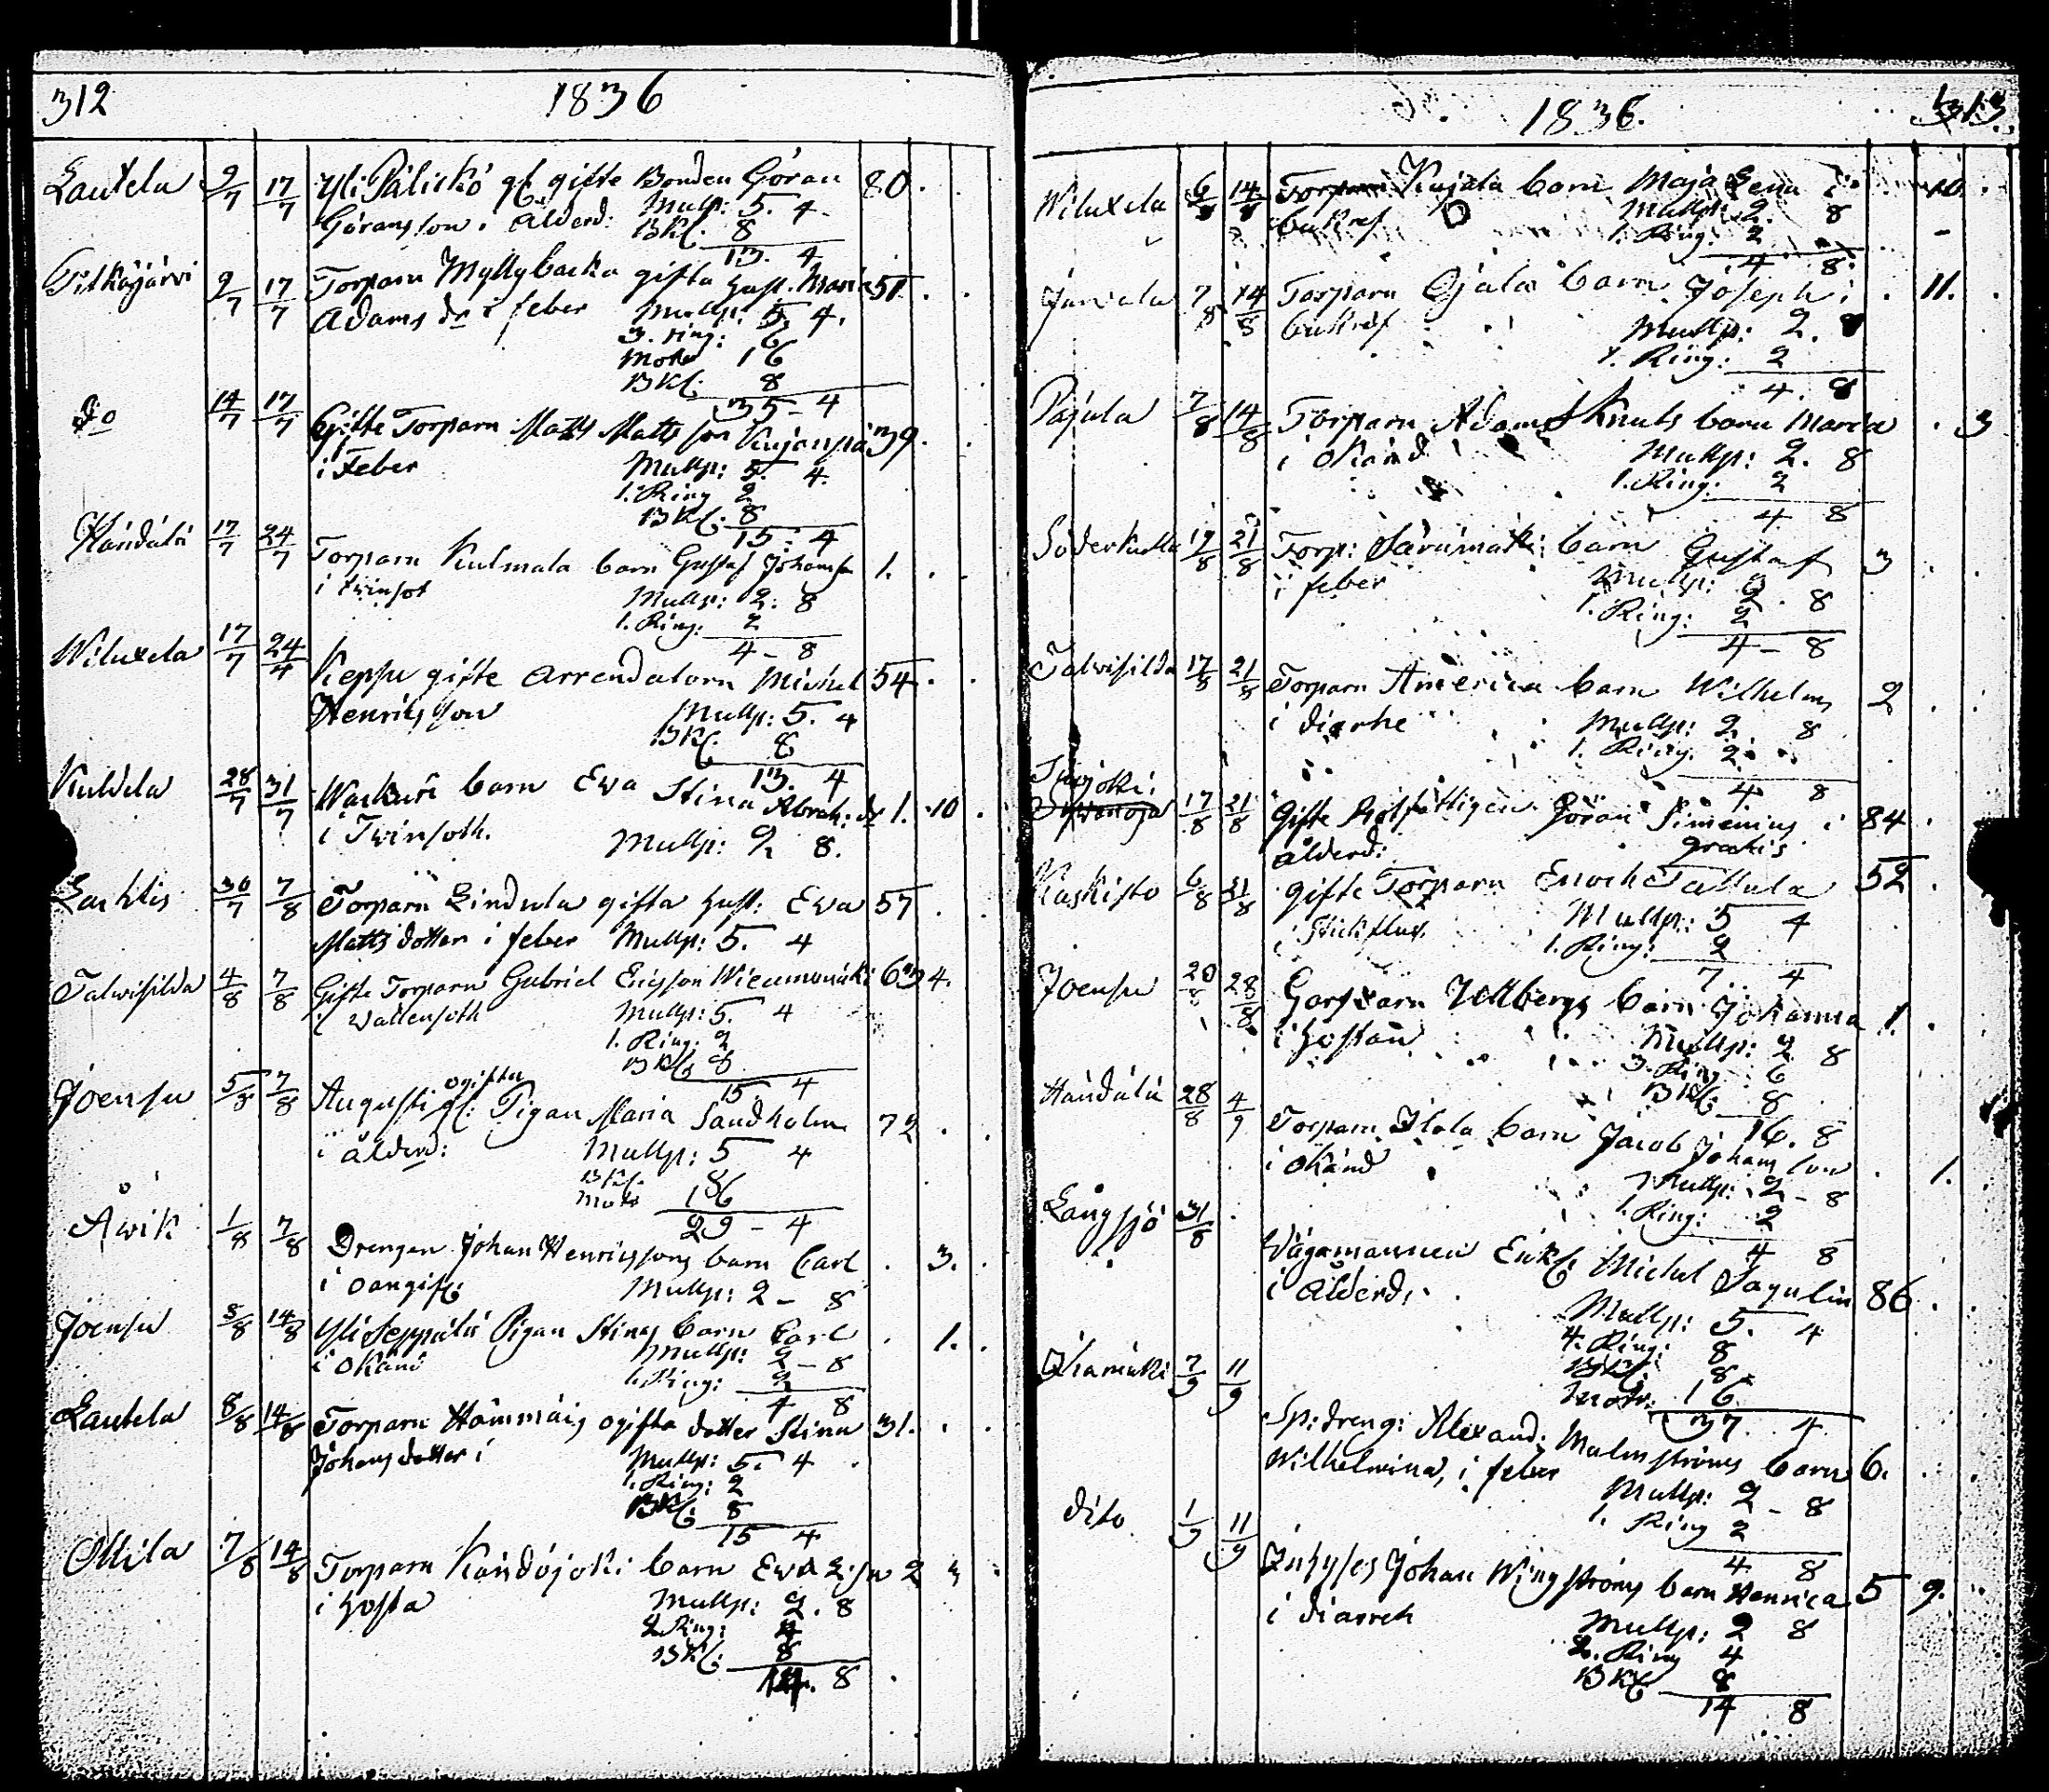 312 1836
Lautela 9/7 17/7 Yli Pälickö gl gifte Bonden Göran 80.
Göransson i Ålderd: Mullp: 5. 4
BKl: 8
13. 4
Pitkäjärvi 9/7 17/7 Torparn Myllybacka gifta hust. Maria 51.
Adams dr i feber Mullp: 5. 4.
3. ring: 6
Moter 16
BKl: 8
35 - 4
do 14/7 17/7 Gifte Torparn Matts Mattsson Kujanpä 39.
i Feber Mullp: 5. 4.
1. Ring 2
BKl: 8
15. 4
Händälä 17/7 24/7 Torparn Kulmala barn Gustaf Johansson 1.
i twinsot Mullp: 2. 8
1. Ring: 2
4 - 8
Wiluxela 17/7 24/7 Keppu gifte Arrendatorn Michel 54.
Henricsson Mullp: 5. 4
BKl: 8
13. 4
Kuldela 28/7 31/7 Waskuri barn Ewa Stina Abrah: dr 1. 10.
i Twinsoth. Mullp: 2 8.
Lachtis 30/7 7/8 Torparn Lindula gifta hust: Ewa 57
Matts dotter i feber Mullp: 5. 4
Talwisilda 4/8 7/8 Gifte Torparn Gabriel Ericsson 63 4.
i Wattensoth Mullp: 5. 4
1. Ring. 2
BKl: 8
15 4
Joensu 5/8 7/8 Augusti gl: ogifta Pigan Maria Sandholm 72
i ålderd: Mullp: 5 4
BKl. 8
Moter 16
29 - 4
Åwik 1/8 7/8 Drengen Johan Henricssons barn Carl 3.
i oangifl: Mullp: 2 - 8
Joensu 5/8 14/8 Yli Seppälä Pigan Stinas barn Carl 1.
i okänd Mullp: 2 - 8
1. Ring: 2
4 8
Lautela 8/8 14/8 Torparn Hämmäis ogifta dotter Stina 31.
Johans dotter i Mullp: 5. 4
1. Ring: 2
BKl: 8
15 4
Ollila 7/8 14/8 Torparn Kändöjoki barn Ewa Lisa 2 3
i hosta Mullp: 2. 8
2 Ring: 4
BKl: 8
14. 8
1836. 313
Wiluxela 6/8 14/8 Torparn Kujala barn Maja Lena i 10.
bukref Mullp: 2. 8
1. Ring: 2
4 8.
Juvala 7/8 14/8 Torparn Ojala barn Joseph i 11.
bukref Mullp: 2. 8
1. Ring: 2
4. 8
Pajula 7/8 14/8 Torparn Adam Knuts barn Maria 3
i okänd Mullp: 2. 8
1. Ring: 2
4 8
Söderkulla 19/8 21/8 Torp: Saramäki barn Gustaf 3
i feber Mullp: 2. 8
1. Ring: 2
4 - 8
Talwisilda 17/8 21/8 Torparn America barn Wilhelm 2
i diarhe Mullp: 2. 8
1. Ring. 2
4. 8
17/8 21/8 Gifte Göran Simenius i 84
ålderd: gratis
Kaskisto 6/8 21/8 gifte Torparn Enoch Tattula 52
i Stickflus. Mullp: 5 4
1. Ring: 2
7. 4
Joensu 20/8 28/8 Garfvarn Wellbergs barn Johanna 1.
i hostan Mullp: 2 8
3. Ring 6
BKl: 8
16. 8
Händälä 28/8 4/9 Torparn Ilola barn Jacob Johansson 1.
i okänd Mullp: 2 - 8
1. Ring: 2
4 8
Långsjö 31/8 Wågamannen Enkl. Michel Sagulin 86
i Ålderd. Mullp: 5. 4
4. Ring: 8
BKl: 8
Moter: 16
37. 4
7/9 11/9 Sp: dreng: Alexand: Malmströms barn 6.
Wilhelmina, i feber Mullp: 2 - 8
1. Ring 2
4 8
dito 1/9 11/9 Johan Wingströms barn Henrica 5 9.
i diarreh Mullp: 2 8
2. Ring 4
BKl: 8
14 8